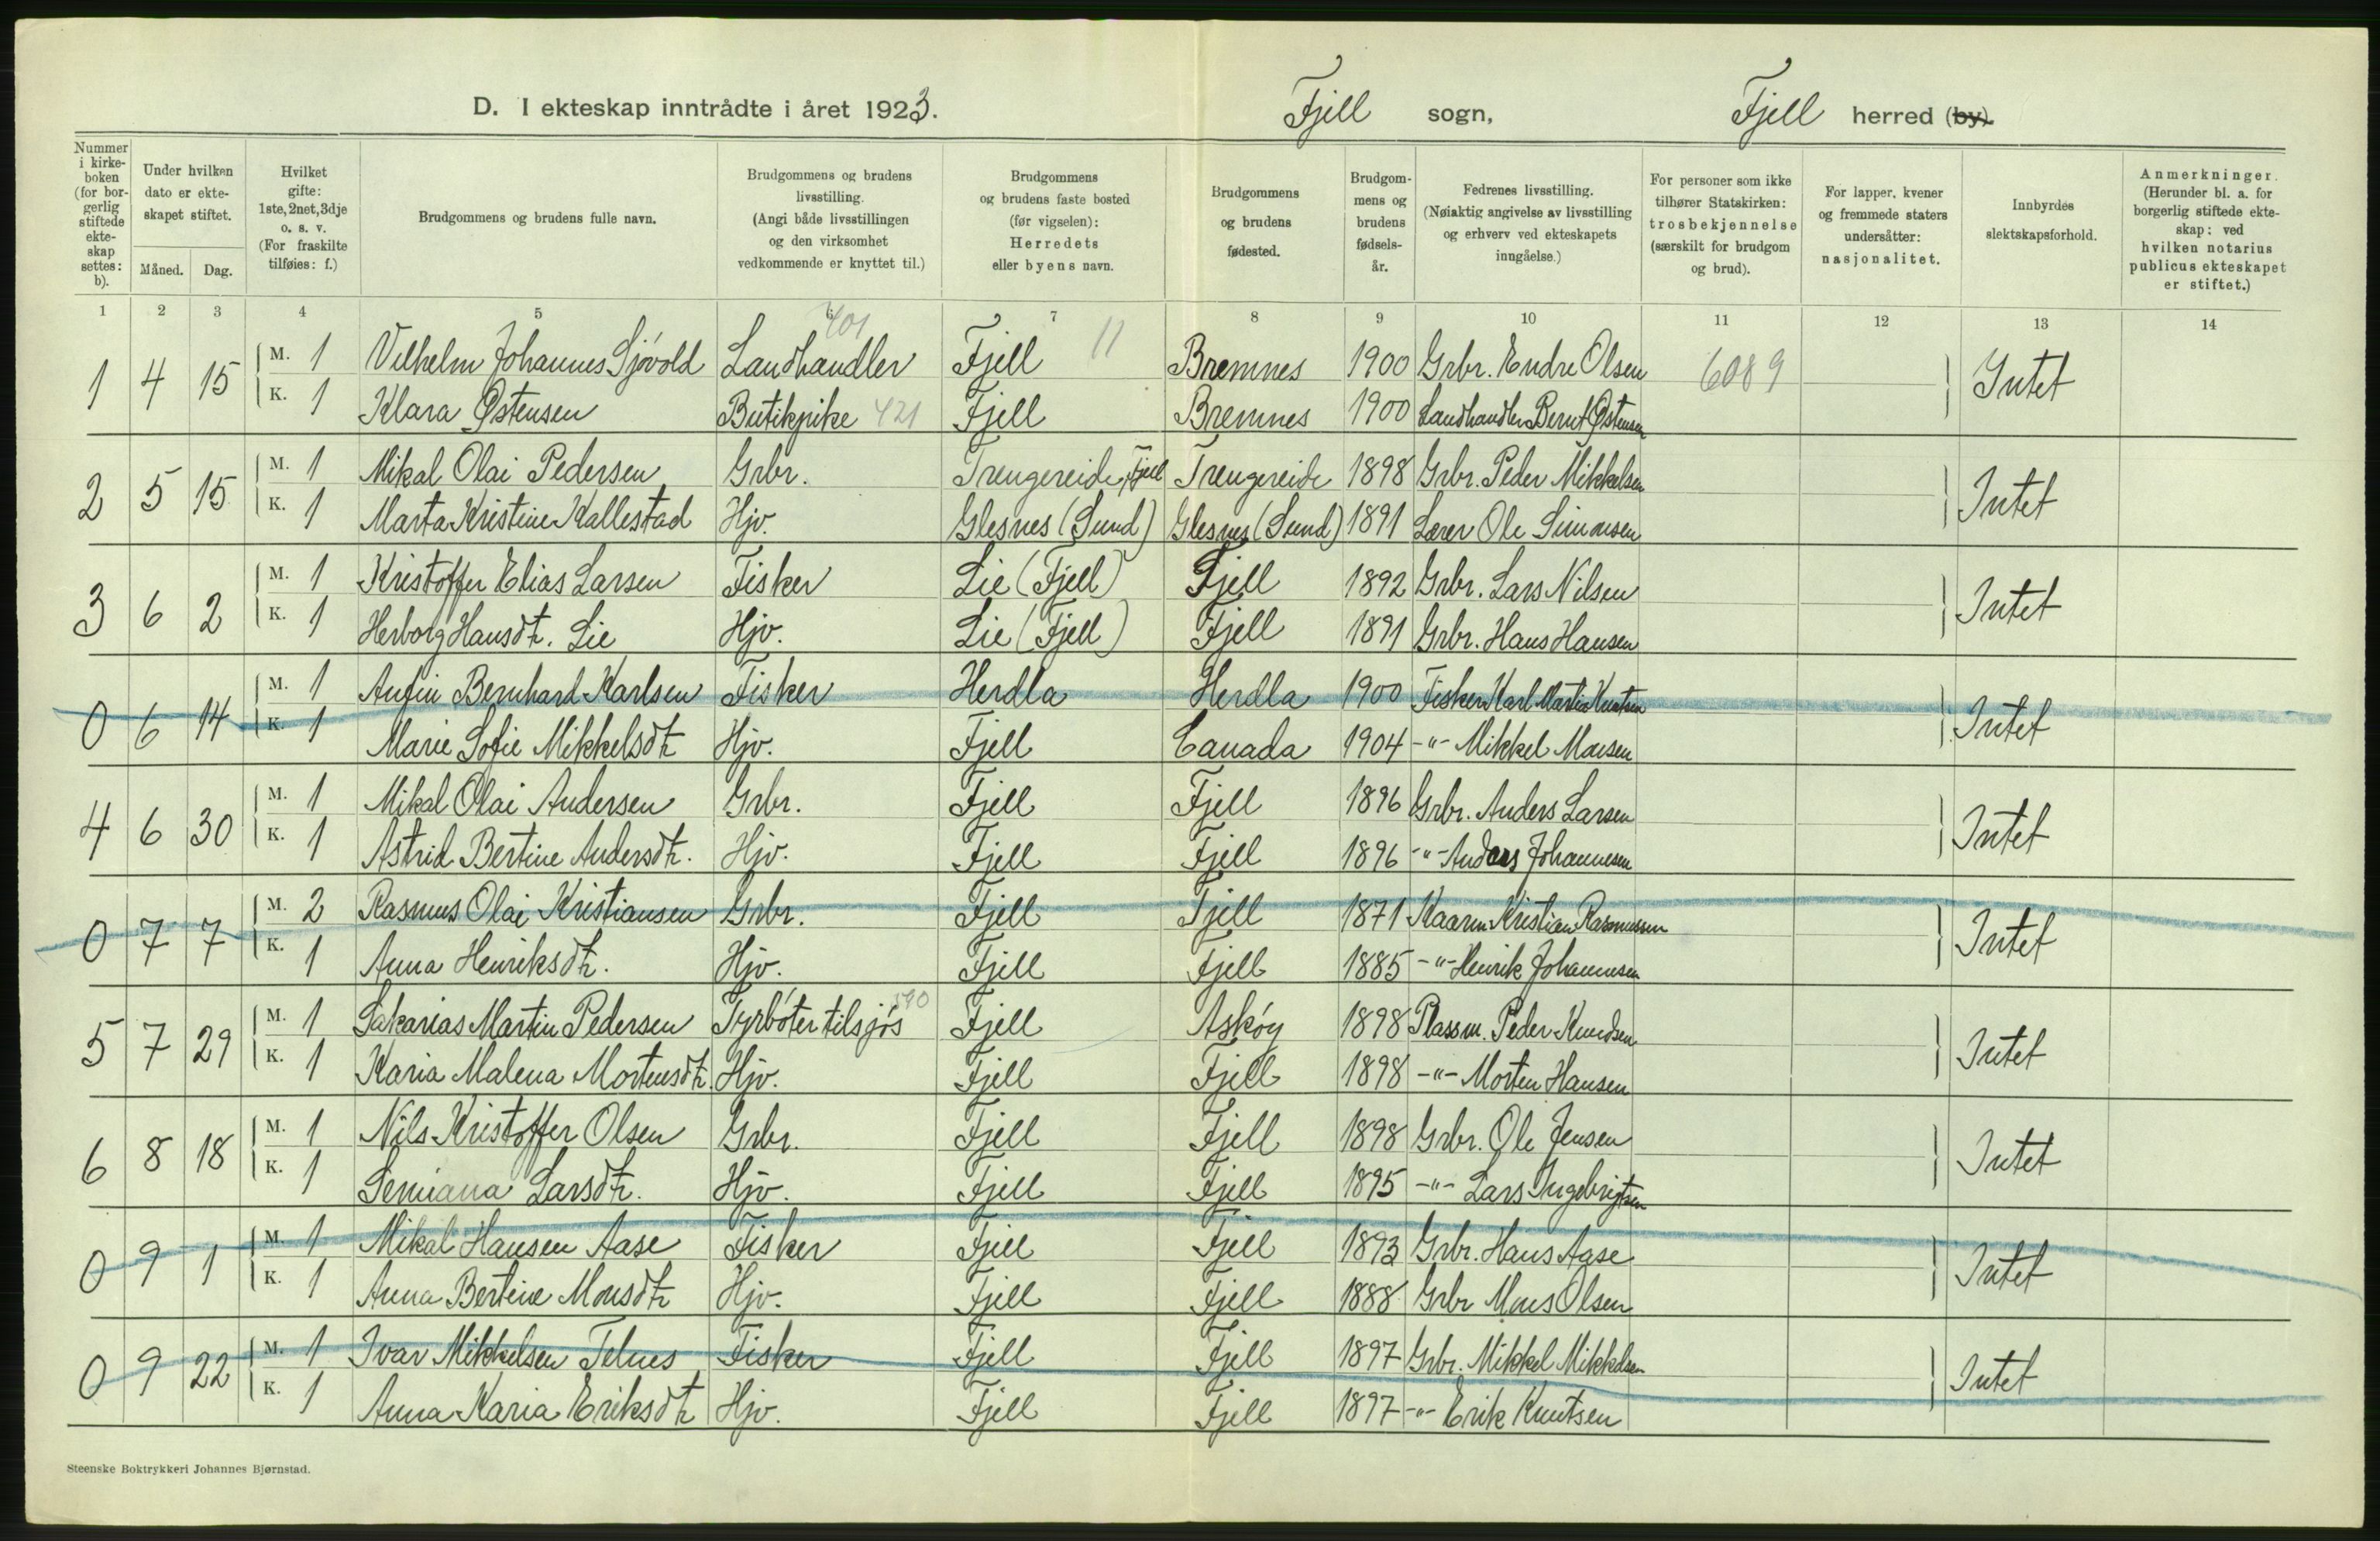 D. I ekteskap inntrådte i året 1923. Fjell sogn, Fjell herred (by).
Nummer i kirkeboken (for borgerlig stiftede ekteskap settes: b).
Under hvilken dato er ekteskapet stiftet.
Måned. Dag.
Hvilket gifte: 1ste, 2net, 3dje o. s. v. (For fraskilte tilføies: f.)
Brudgommens og brudens fulle navn.
Brudgommens og brudens livsstilling. (Angi både livsstillingen og den virksomhet vedkommende er knyttet til.)
Brudgommens og brudens faste bosted (før vigselen): Herredets eller byens navn.
Brudgommens og brudens fødested.
Brudgommens og brudens fødselsår.
Fedrenes livsstilling. (Nøiaktig angivelse av livsstilling og erhverv ved ekteskapets inngåelse.)
For personer som ikke tilhører Statskirken: trosbekjennelse (særskilt for brudgom og brud).
For lapper, kvener og fremmede staters undersåtter: nasjonalitet.
Innbyrdes slektskapsforhold.
Anmerkninger. (Herunder bl. a. for borgerlig stiftede ekteskap: ved hvilken notarius publicus ekteskapet er stiftet.)
1 2 3 4 5 6 7 8 9 10 11 12 13 14
401 11
1 4 15 M. 1 Vilhelm Johannes Sjøvold Landhandler Fjell Bremnes 1900 Grbr. Endre Olsen 6089 Intet
K. 1 Klara Østensen Butikpike 421 Fjell Bremnes 1900 Landhandler Bernt Østensen
2 5 15 M. 1 Mikal Olai Pedersen Grbr. Trengereide, Fjell Trengereide 1898 Grbr. Peder Mikkelsen Intet
K. 1 Marta Kristine Kallestad Hjv. Glesnes (Sund) Glesnes (Sund) 1891 Lærer Ole Simonsen
3 6 2 M. 1 Kristoffer Elias Larsen Fisker Lie (Fjell) Fjell 1892 Grbr. Lars Nilsen Intet
K. 1 Herborg Hansdtr. Lie Hjv. Lie (Fjell) Fjell 1891 Grbr. Hans Hansen
0 6 14 M. 1 Anfin Bernhard Karlsen Fisker Herdla Herdla 1900 Fisker Karl Martin Knutsen Intet
K. 1 Marie Sofie Mikkelsdtr Hjv. Fjell Canada 1904 -"- Mikkel Monsen
4 6 30 M. 1 Mikal Olai Andersen Grbr. Fjell Fjell 1896 Grbr. Anders Larsen Intet
K. 1 Astrid Bertine Andersdtr. Hjv. Fjell Fjell 1896 -"- Anders Johannesen
0 7 7 M. 2 Rasmus Olai Kristiansen Grbr. Fjell Fjell 1871 Kaarm Kristian Rasmussen Intet
K. 1 Anna Henriksdtr. Hjv. Fjell Fjell 1885 -"- Henrik Johannesen
5 7 29 M. 1 Sakarias Martin Pedersen Fyrbøter tilsjøs Fjell Askøy 1898 Plassm. Peder Knudsen Intet
K. 1 Karia Malena Mortensdtr. Hjv. Fjell Fjell 1898 -"- Morten Hansen
6 8 18 M. 1 Nils Kristoffer Olsen Grbr. Fjell Fjell 1898 Grbr. Ole Jensen Intet
K. 1 Semiana Larsdtr. Hjv. Fjell Fjell 1895 -"- Lars Ingebrigtsen
0 9 1 M. 1 Mikal Hansen Aase Fisker Fjell Fjell 1893 Grbr. Hans Aase Intet
K. 1 Anna Bertine Monsdtr Hjv. Fjell Fjell 1888 Grbr Mons Olsen
0 9 22 M. 1 Ivar Mikkelsen Telnes Fisker Fjell Fjell 1897 Grbr. Mikkel Mikkelsen Intet
K. 1 Anna Karia Eriksdtr Hjv. Fjell Fjell 1897 -"- Erik Knutsen
Steenske Boktrykkeri Johannes Bjørnstad.